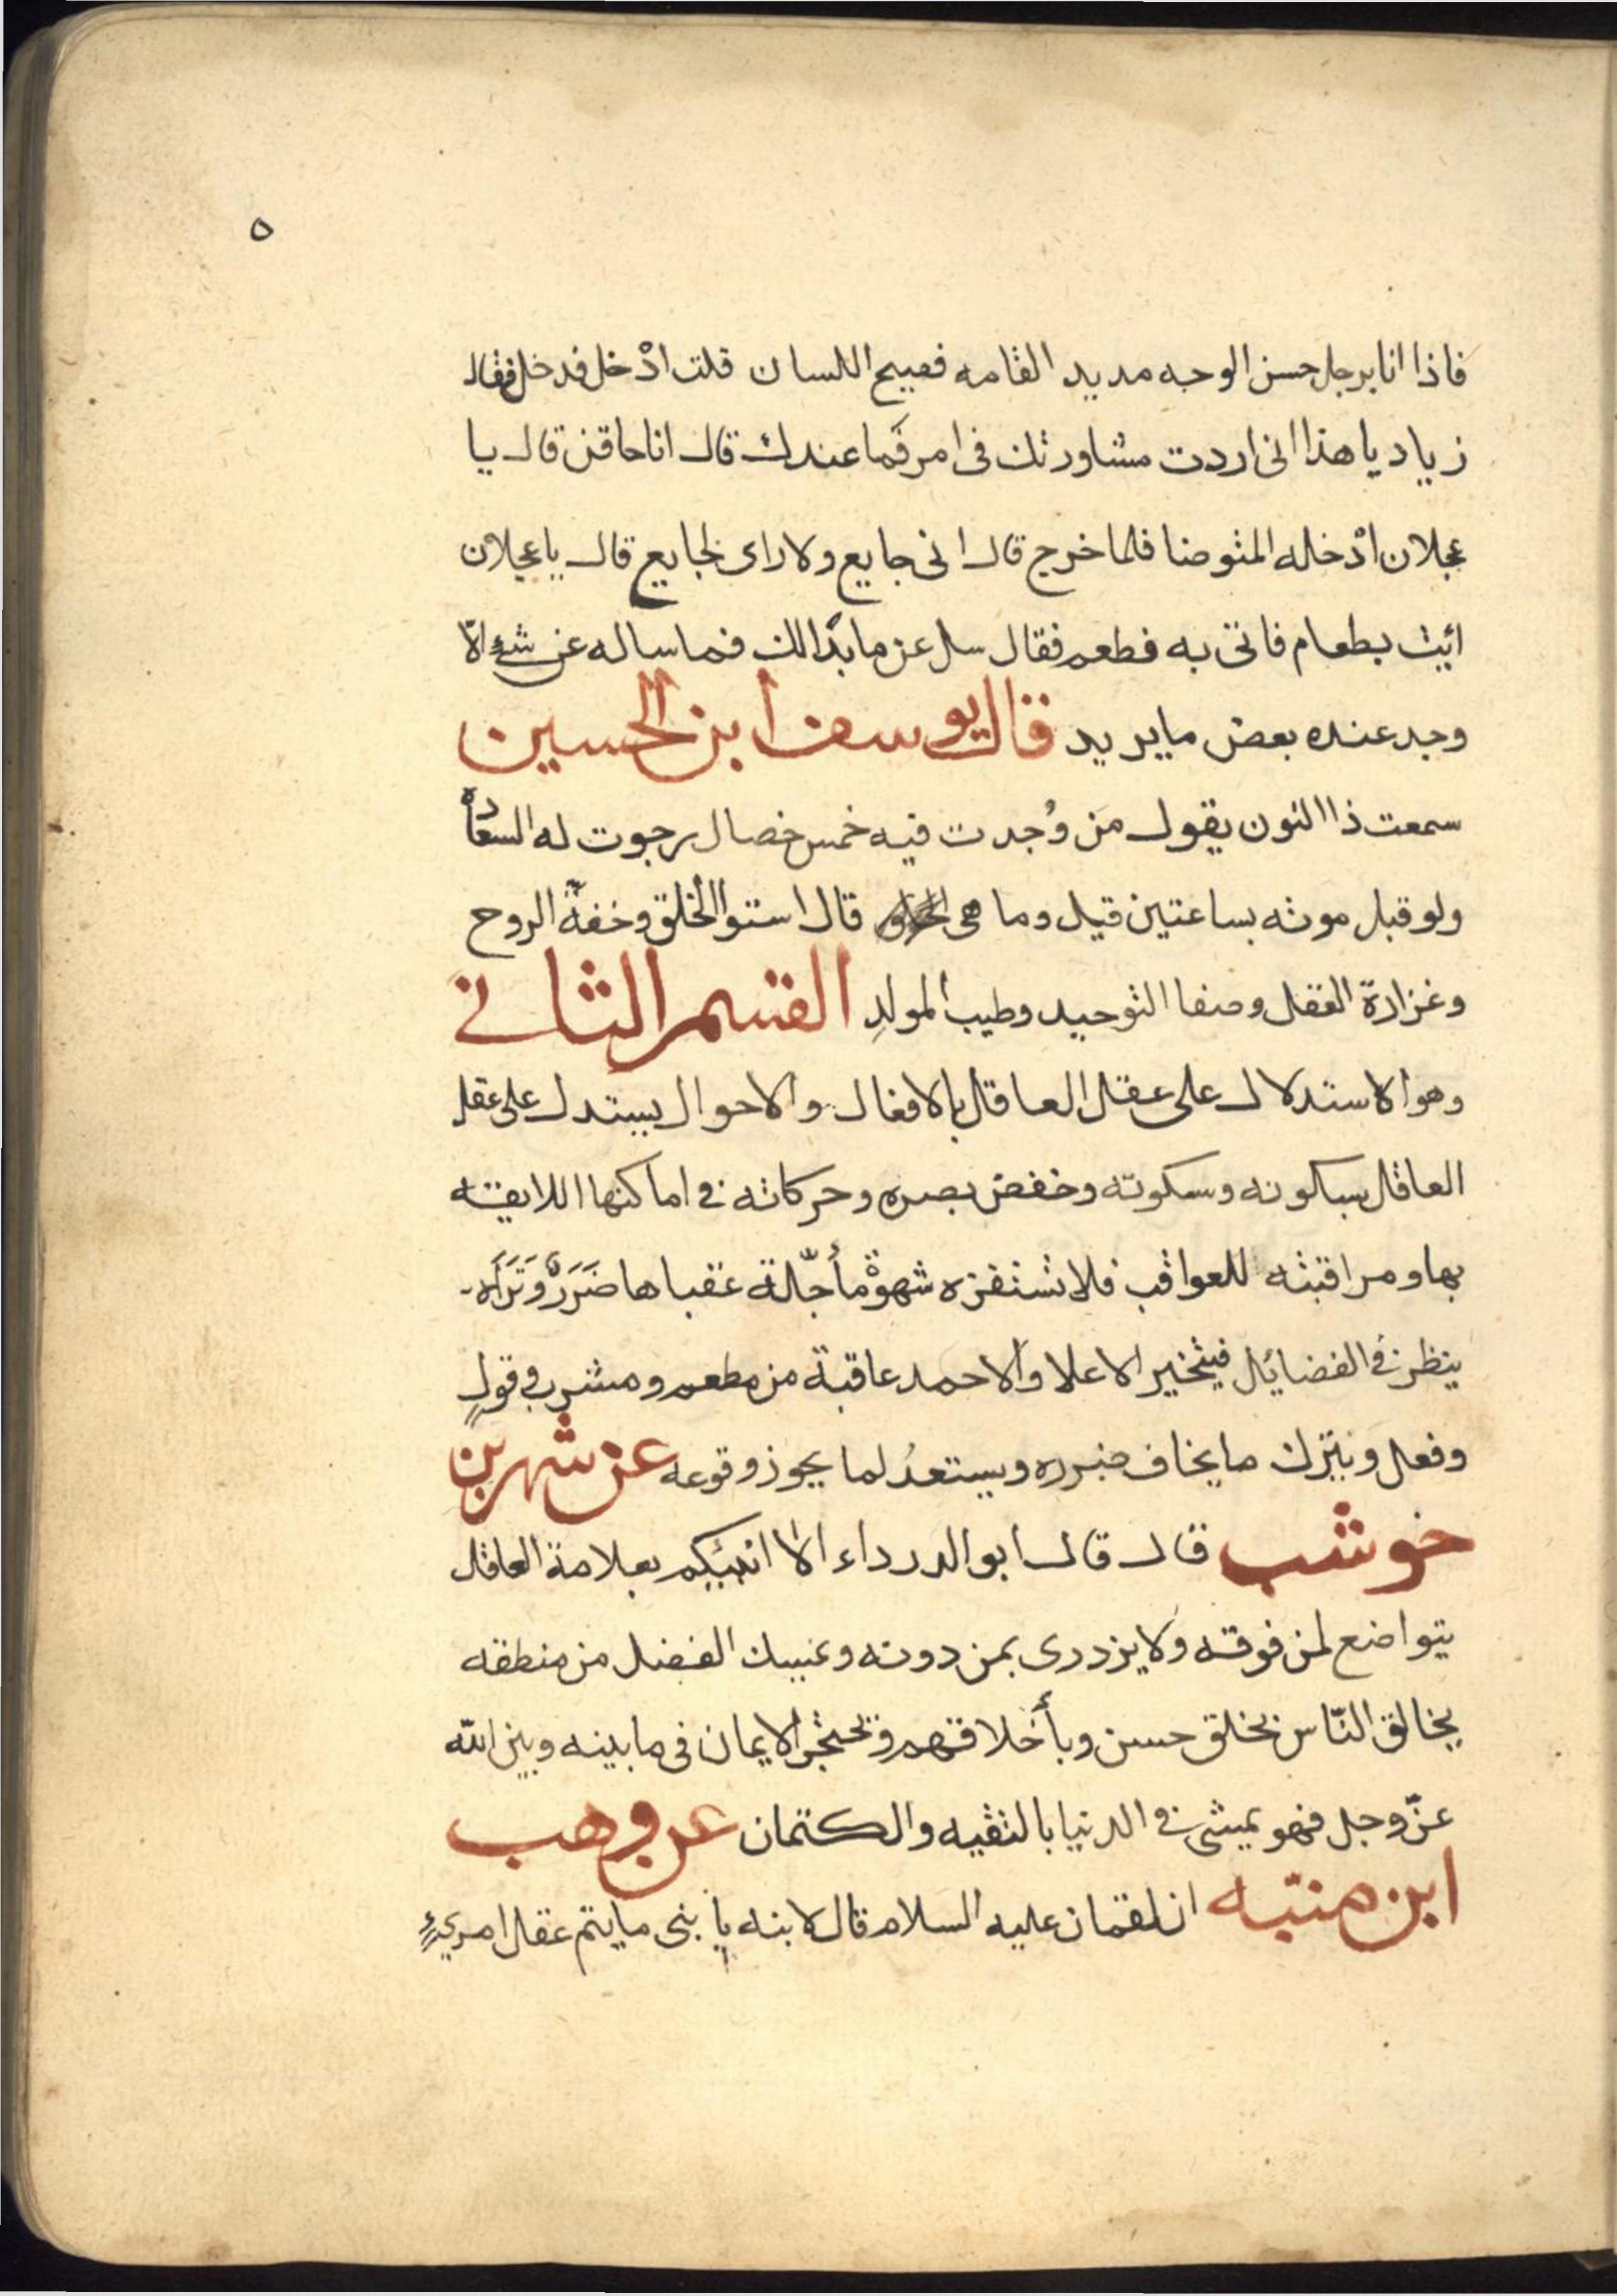 ٥
فاذا انا برجل حسن الوجه مديد القامه فصيح اللسان قلت ادْخل فدخل فقال
زياد يا هذا انى اردت مشاورتك فى امر فَما عندك قال انا حاقن قال يا
عجلان ادْخله المتوضا فلما خرج قال انى جايع ولا راى لجايع قال يا عجلان
ائيت بطعام فاتى به فطعم فقال سل عن ما بدا لك فما ساله عن شئ الّا
وجد عنده بعض ما يريد قال يوسف ابن الحسين
سمعت ذا النون يقول مَن وُجدت فيه خمس خصال رجوت له السعادة
ولو قبل موته بساعتين قيل وما هى قال استوا الخلق وخفة الروح
وغزارة العقل وصفا التوحيد وطيب المولدِ القسم الثانى
وهو الاستدلال على عقل العاقل بالافعال والاحوال يستدل على عقل
العاقل بسكونه وسكوته وخفض بصره وحركاته فى اماكنها اللايقه
بها ومراقبته للعواقب فلا تستفزه شهوة مأجّلة عقباها ضَرَرٌ وَتَرَاه
ينظر فى الفضائل فيتخير الاعلا والاحمد عاقبة من مطعم ومشرب وقولٍ
وفعل ويترك ما يخاف ضرره ويستعدُ لما يجوز وقوعه عن شهر بن
خوشب قال قال ابو الدرداء الا انبئكم بعلامة العاقل
يتواضع لمن فوقه ولا يزدرى بمن دونه ويمسك الفضل من منطقه
يخالق النّاس بخلق حسن وبأخلاقهم ويحتجر الايمان فى ما بينه وبين اللّه
عزّ وجل فهو يمشى فى الدنيا بالتقيه والكتمان عن وهب
ابن منبّه ان لقمان عليه السلام قال لابنه يا بنى ما يتم عقل امرئٍ